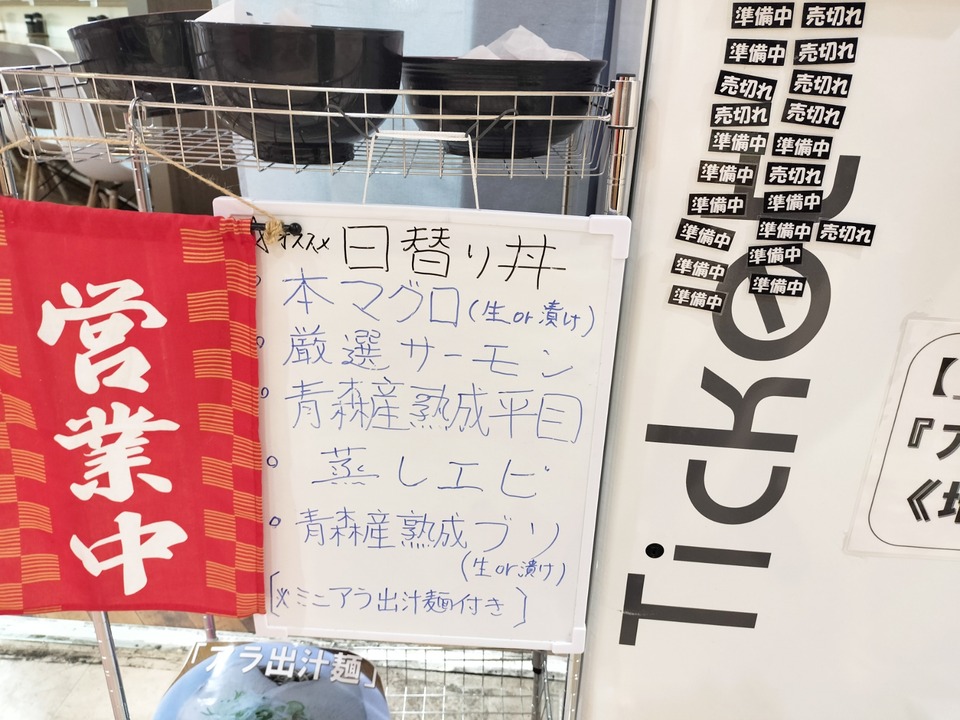 営業中
オススメ 日替り丼
本マグロ(生or漬け)
厳選サーモン
青森産熟成平目
蒸しエビ
青森産熟成ブリ
(生or漬け)
[※ミニアラ出汁麺付き]
「アラ出汁麺」
準備中 売切れ
準備中 売切れ
売切れ 売切れ
売切れ 売切れ
準備中 準備中
準備中 売切れ
準備中 準備中
準備中 準備中 売切れ
準備中 準備中
準備中 準備中
Ticket
【
『ア
《